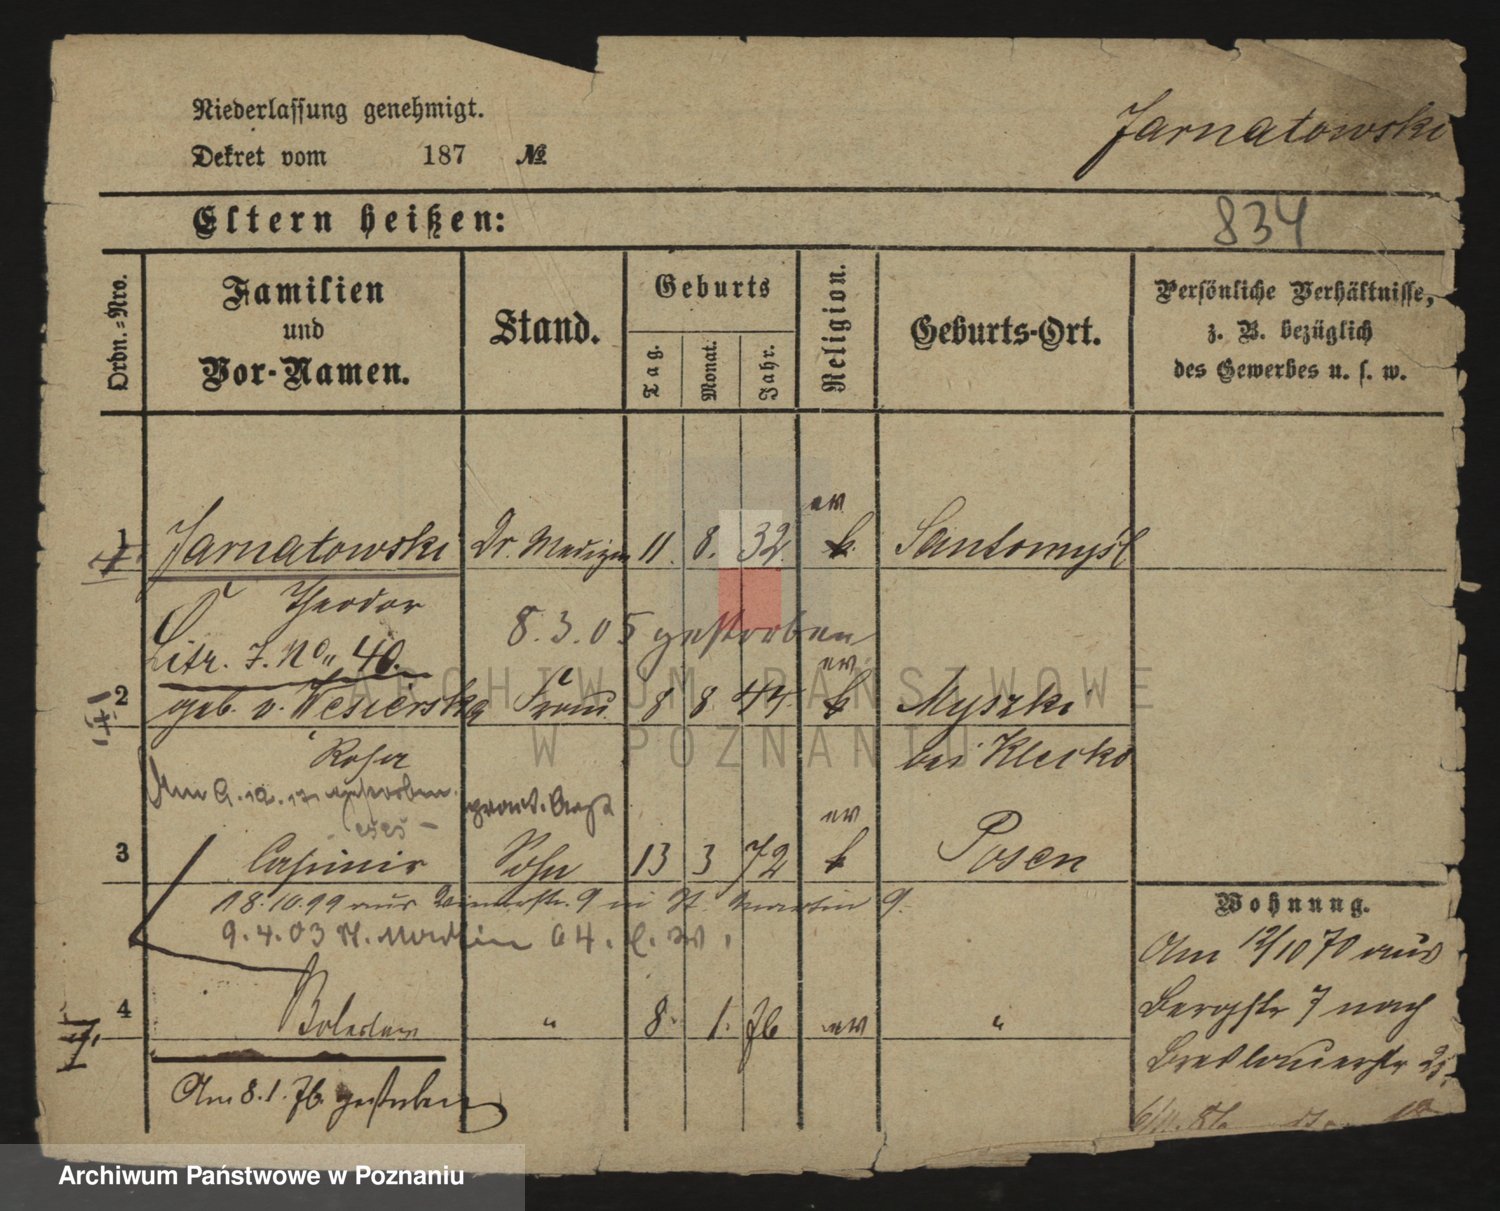 Niederlassung genehmigt.
Jarnatowski
Dekret vom 187 №
Eltern heißen:
834
Ordn.-Nro.
Familien
und
Vor-Namen.
Stand.
Geburts
Tag.
Monat.
Jahr.
Religion.
Geburts-Ort.
Persönliche Verhältnisse,
z. B. bezüglich
des Gewerbes u. s. w.
ev
1 Jarnatowski Dr. Medizin 11. 8. 32. k. Santomysl
Theodor
8.3.05 gestorben
Litr. J. No 40.
ev
2 geb. v. Wesierska Frau 8 8 44. k Myszki
Rosa
bei Klecko
Am gestorben.
prakt. Arzt
ev
3 Casimir Sohn 13 3 72 k Posen
18.10.99 aus 9 in St. Martin 9.
9.4.03 St. Martin 64.
Wohnung.
Am 12/10 70 aus
Bergstr 7 nach
Breslauerstr
4 Boleslaw " 8. 1. 76 ev "
Am 8.1.76 gestorben
ARCHIWUM PAŃSTWOWE
W POZNANIU
Archiwum Państwowe w Poznaniu